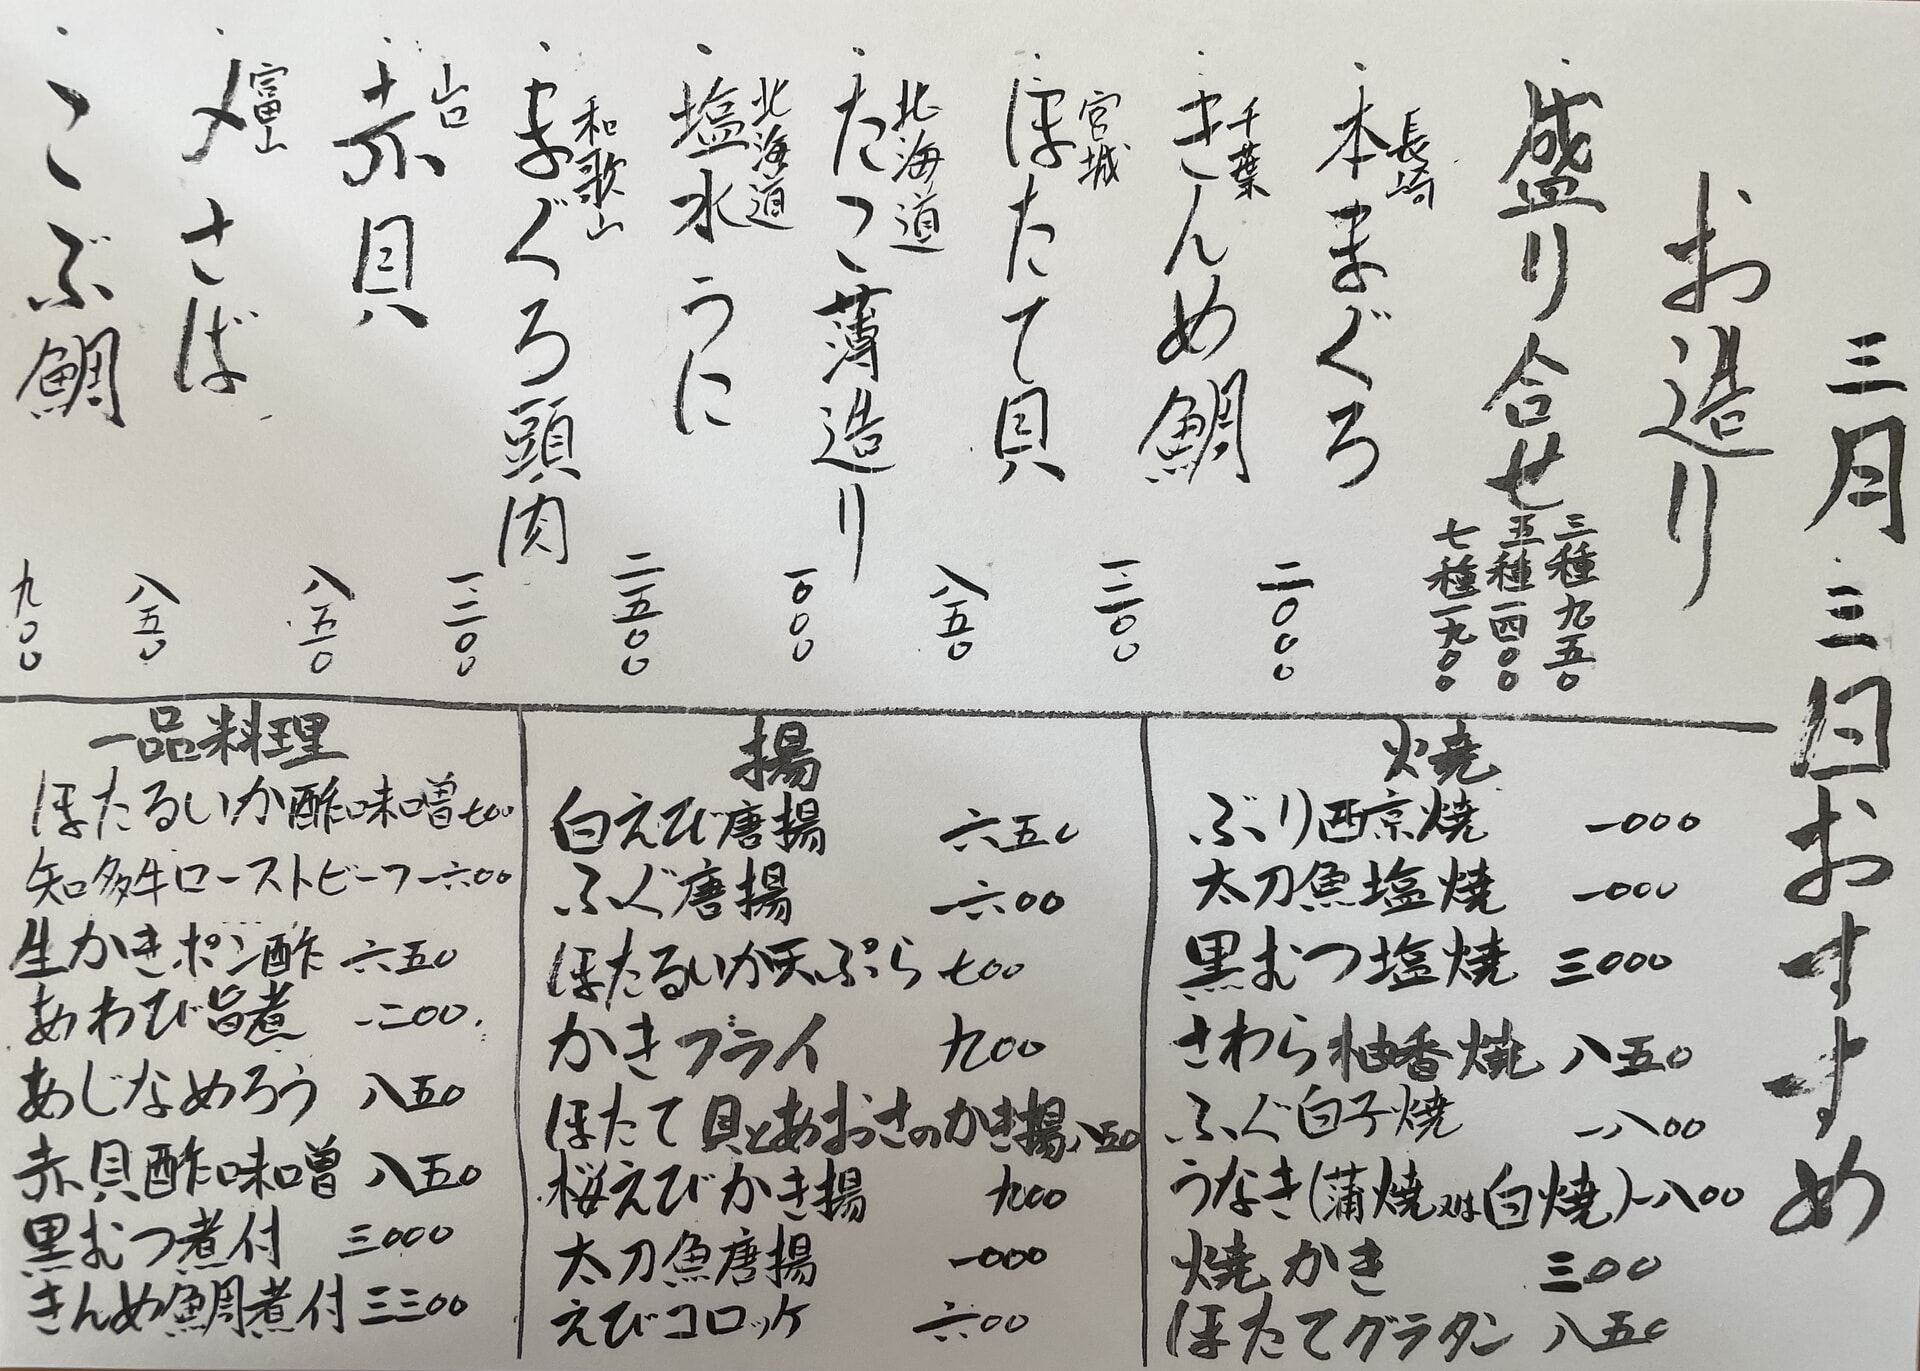 三月三日おすすめ
お造り
盛り合せ
三種 九五〇
五種 一四〇〇
七種 一九〇〇
長崎
・本まぐろ 二〇〇〇
千葉
・きんめ鯛 一二〇〇
宮城
・ほたて貝 八五〇
北海道
・たこ薄造り 一〇〇〇
北海道
・塩水うに 二五〇〇
和歌山
・まぐろ頭肉 一二〇〇
山口
・赤貝 八五〇
富山
・〆さば 八五〇
・こぶ鯛 九〇〇
焼
ぶり西京焼 一〇〇〇
太刀魚塩焼 一〇〇〇
黒むつ塩焼 三〇〇〇
さわら柚香焼 八五〇
ふぐ白子焼 一八〇〇
うなぎ(蒲焼又は白焼) 一八〇〇
焼かき 三〇〇
ほたてグラタン 八五〇
揚
白えび唐揚 六五〇
ふぐ唐揚 一六〇〇
ほたるいか天ぷら 七〇〇
かきフライ 九〇〇
ほたて貝とあおさのかき揚 八五〇
桜えびかき揚 九〇〇
太刀魚唐揚 一〇〇〇
えびコロッケ 六〇〇
一品料理
ほたるいか酢味噌 七〇〇
知多牛ローストビーフ 一六〇〇
生かきポン酢 六五〇
あわび旨煮 一二〇〇
あじなめろう 八五〇
赤貝酢味噌 八五〇
黒むつ煮付 三〇〇〇
きんめ鯛煮付 三三〇〇